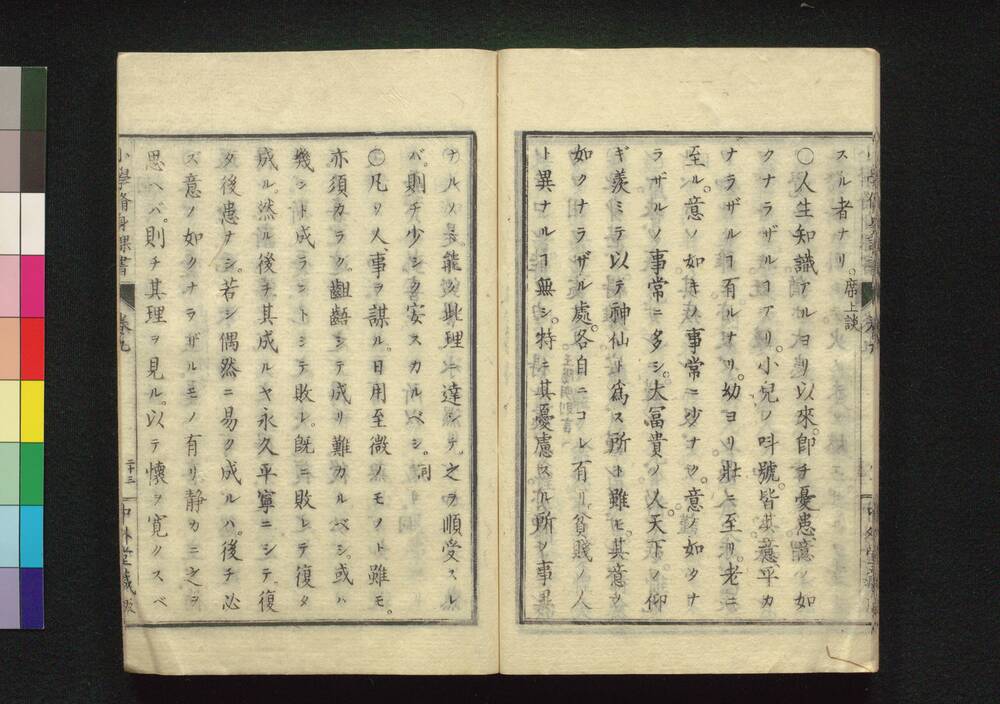 スル者ナリ。席上談
〇人生知識アルヨリ以來。即チ憂患意ノ如
クナラザルヿアリ。小兒ノ叫號皆其意平カ
ナラザルヿ有ルナリ。幼ヨリ壯ニ至リ。老ニ
至ル。意ノ如キノ事常ニ少ナク。意ノ如クナ
ラザルノ事常ニ多シ。大冨貴ノ人。天下ノ仰
ギ羨ミテ以テ神仙ト爲ス所ト雖モ。其意ノ
如クナラザル處。各自ニコレ有リ。貧賤ノ人
ト異ナルヿ無シ。特ニ其憂慮スル所ノ事異
ナルノミ。能ク此理ニ達シテ。之ヲ順受スレ
バ。則チ少シク安スカルベシ。同
〇凡ソ人事ヲ謀ル。日用至微ノモノト雖モ。
亦須カラク。齟齬シテ成リ難カルベシ。或ハ
幾ンド成ラントシテ敗レ。既ニ敗レテ復タ
成ル。然ル後チ其成ルヤ永久平寧ニシテ。復
タ後患ナシ。若シ偶然ニ易ク成ルハ。後チ必
ズ意ノ如クナラザルモノ有リ。静カニ之ヲ
思ヘバ。則チ其理ヲ見ル。以テ懷ヲ寛クスベ
小學脩身課書 卷九 二十三 中外堂藏版